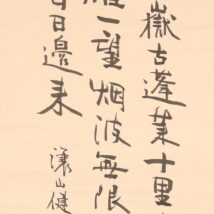 嶽古蓬莱十里
一望烟波無限
日邊来
山健